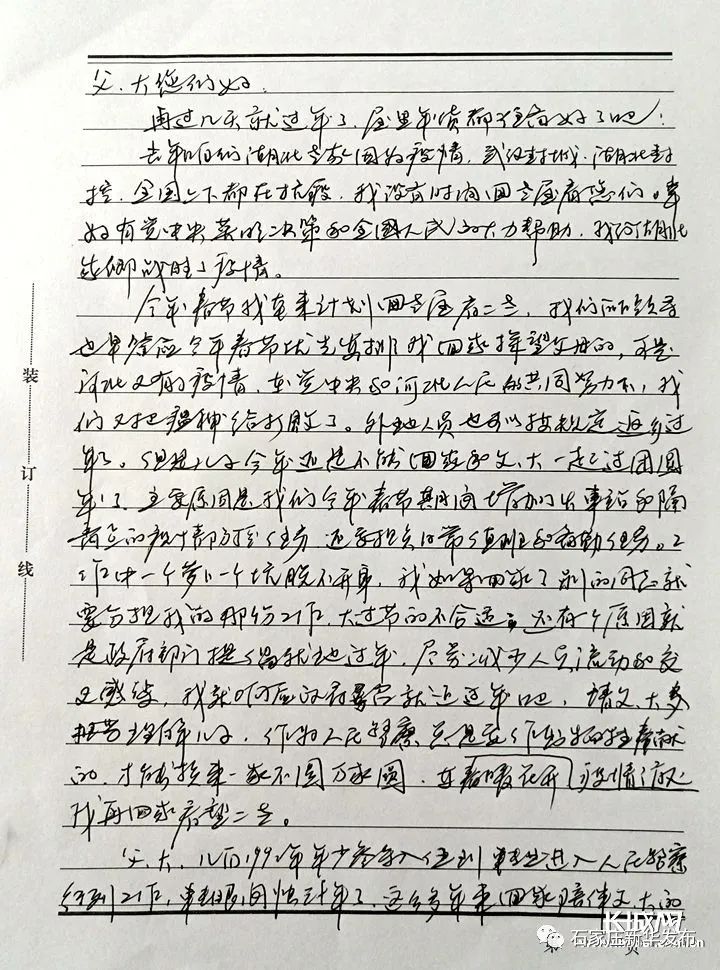 父、大您们好:
再过几天就过年了,屋里年货都准备好了吧!
去年咱们湖北老家因为疫情,武汉封城,湖北封
控,全国上下都在抗疫,我没有时间回老屋看您们。幸
好有党中央英明决策和全国人民的大力帮助,我们湖北
老乡战胜了疫情。
今年春节我本来计划回老屋看二老,我们所领导
也早答应今年春节优先安排我回家探望父母的,可是
河北又有疫情,在党中央和河北人民的共同努力下,我
们又把瘟神给打败了。外地人员也可以按规定返乡过
年了。但是儿子今年还是不能回家和父、大一起过团圆
年了,主要原因是我们今年春节期间增加了火车站和隔
离点的疫情防控任务,还要担负日常值班和备勤任务。工
作中一个萝卜一个坑脱不开身,我如果回家了别的同志就
要分担我的那份工作,大过节的不合适。还有个原因就
是政府部门提倡就地过年,尽量减少人员流动和交
叉感染,我就响应政府号召就近过年吧,请父、大多
担当理解儿子,作为人民警察总是要作出牺牲奉献
的,才能换来一家不圆万家圆,春暖花开疫情消散
我再回家看望二老。
父、大,儿自1992年年少参军入伍到 进入人民警察
行列工作,离 年了,这么多年来回家陪伴父、大的
装
订
线
第 页
长城网
石家庄新华发布